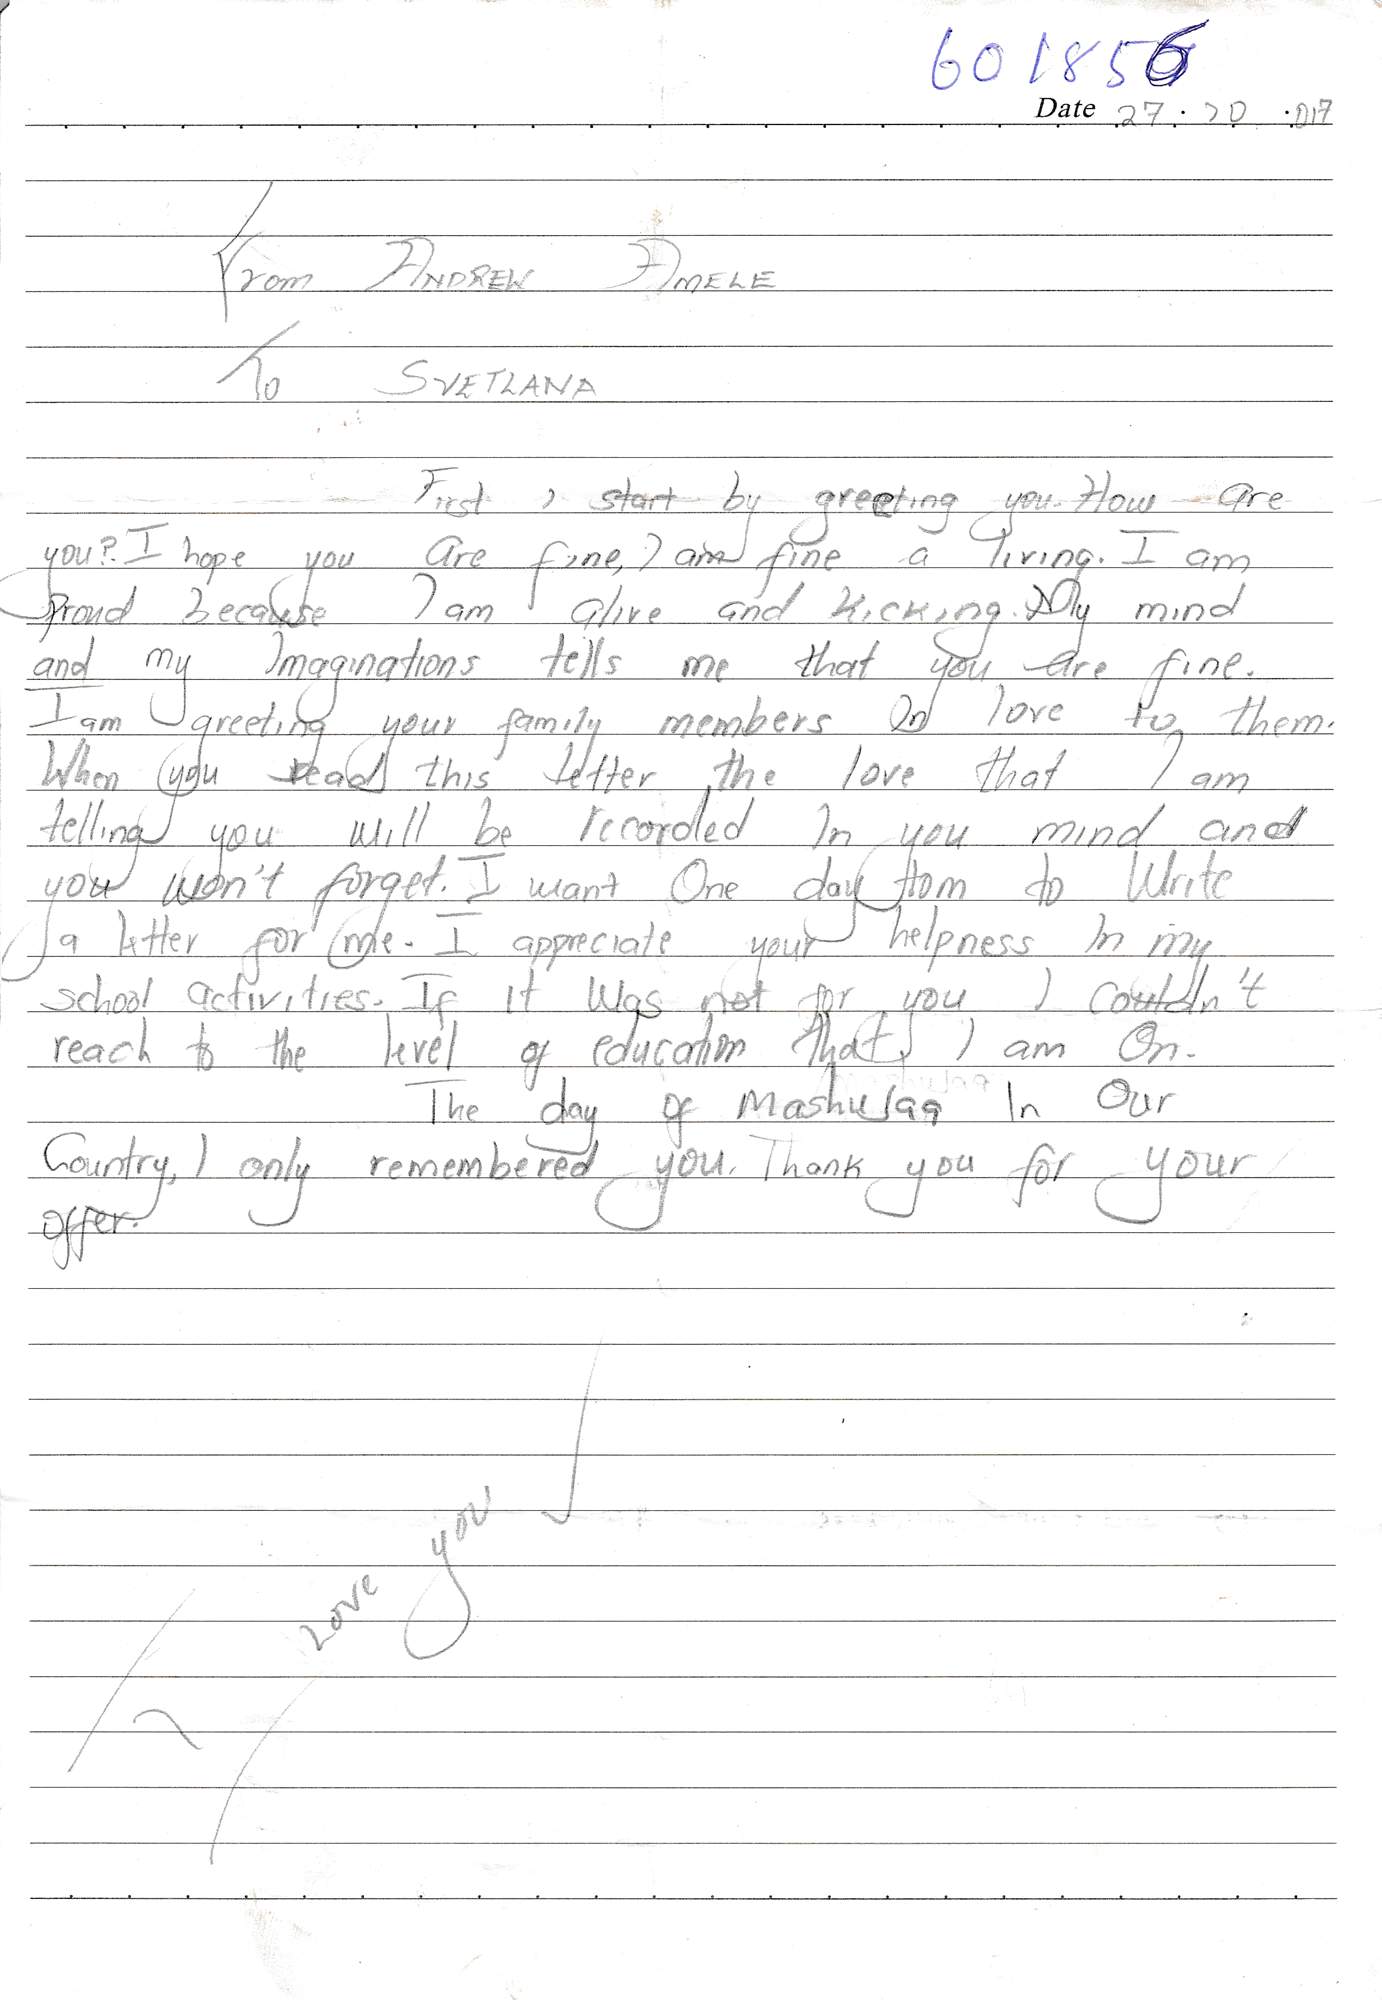 601856
Date 27.10.017
From ANDREW AMELE
To SVETLANA
First I start by greeting you. How are
you? I hope you are fine, I am fine a living. I am
Proud because I am alive and kicking. My mind
and my Imaginations tells me that you are fine.
I am greeting your family members In love to them.
When you read this letter the love that I am
telling you will be recorded In you mind and
you won't forget. I want One day tom to Write
a letter for me. I appreciate your helpness In my
school activities. If it was not for you I couldn't
reach to the level of education that I am On.
The day of Mashujaa In Our
Country, I only remembered you. Thank you for your
offer.
I Love you